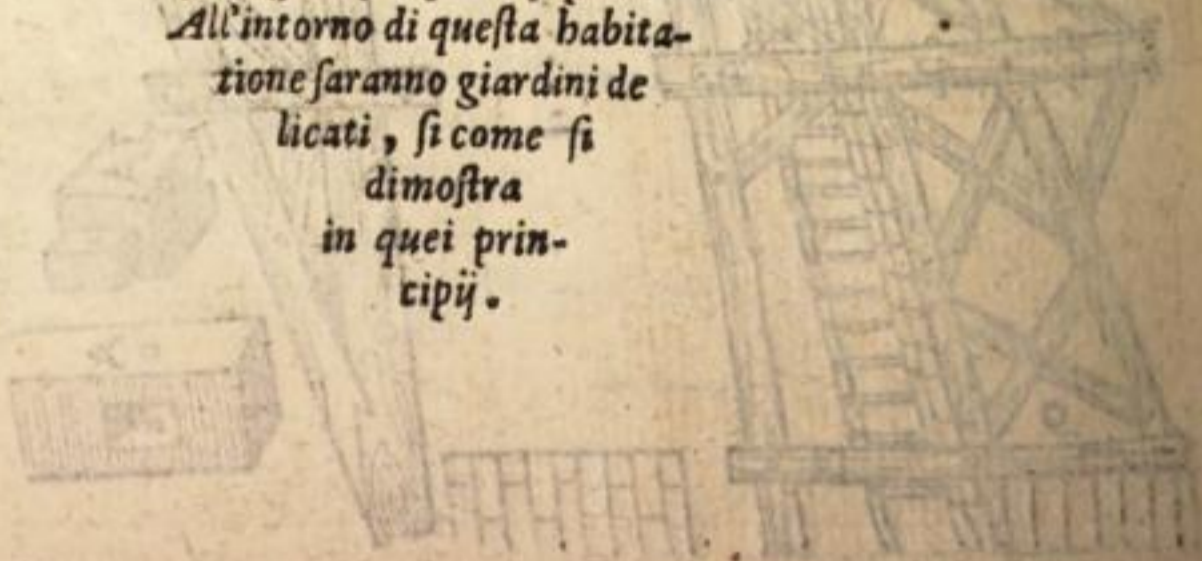 All'intorno di queſta habita-
tione ſaranno giardini de
licati, ſi come ſi
dimoſtra
in quei prin-
cipij.